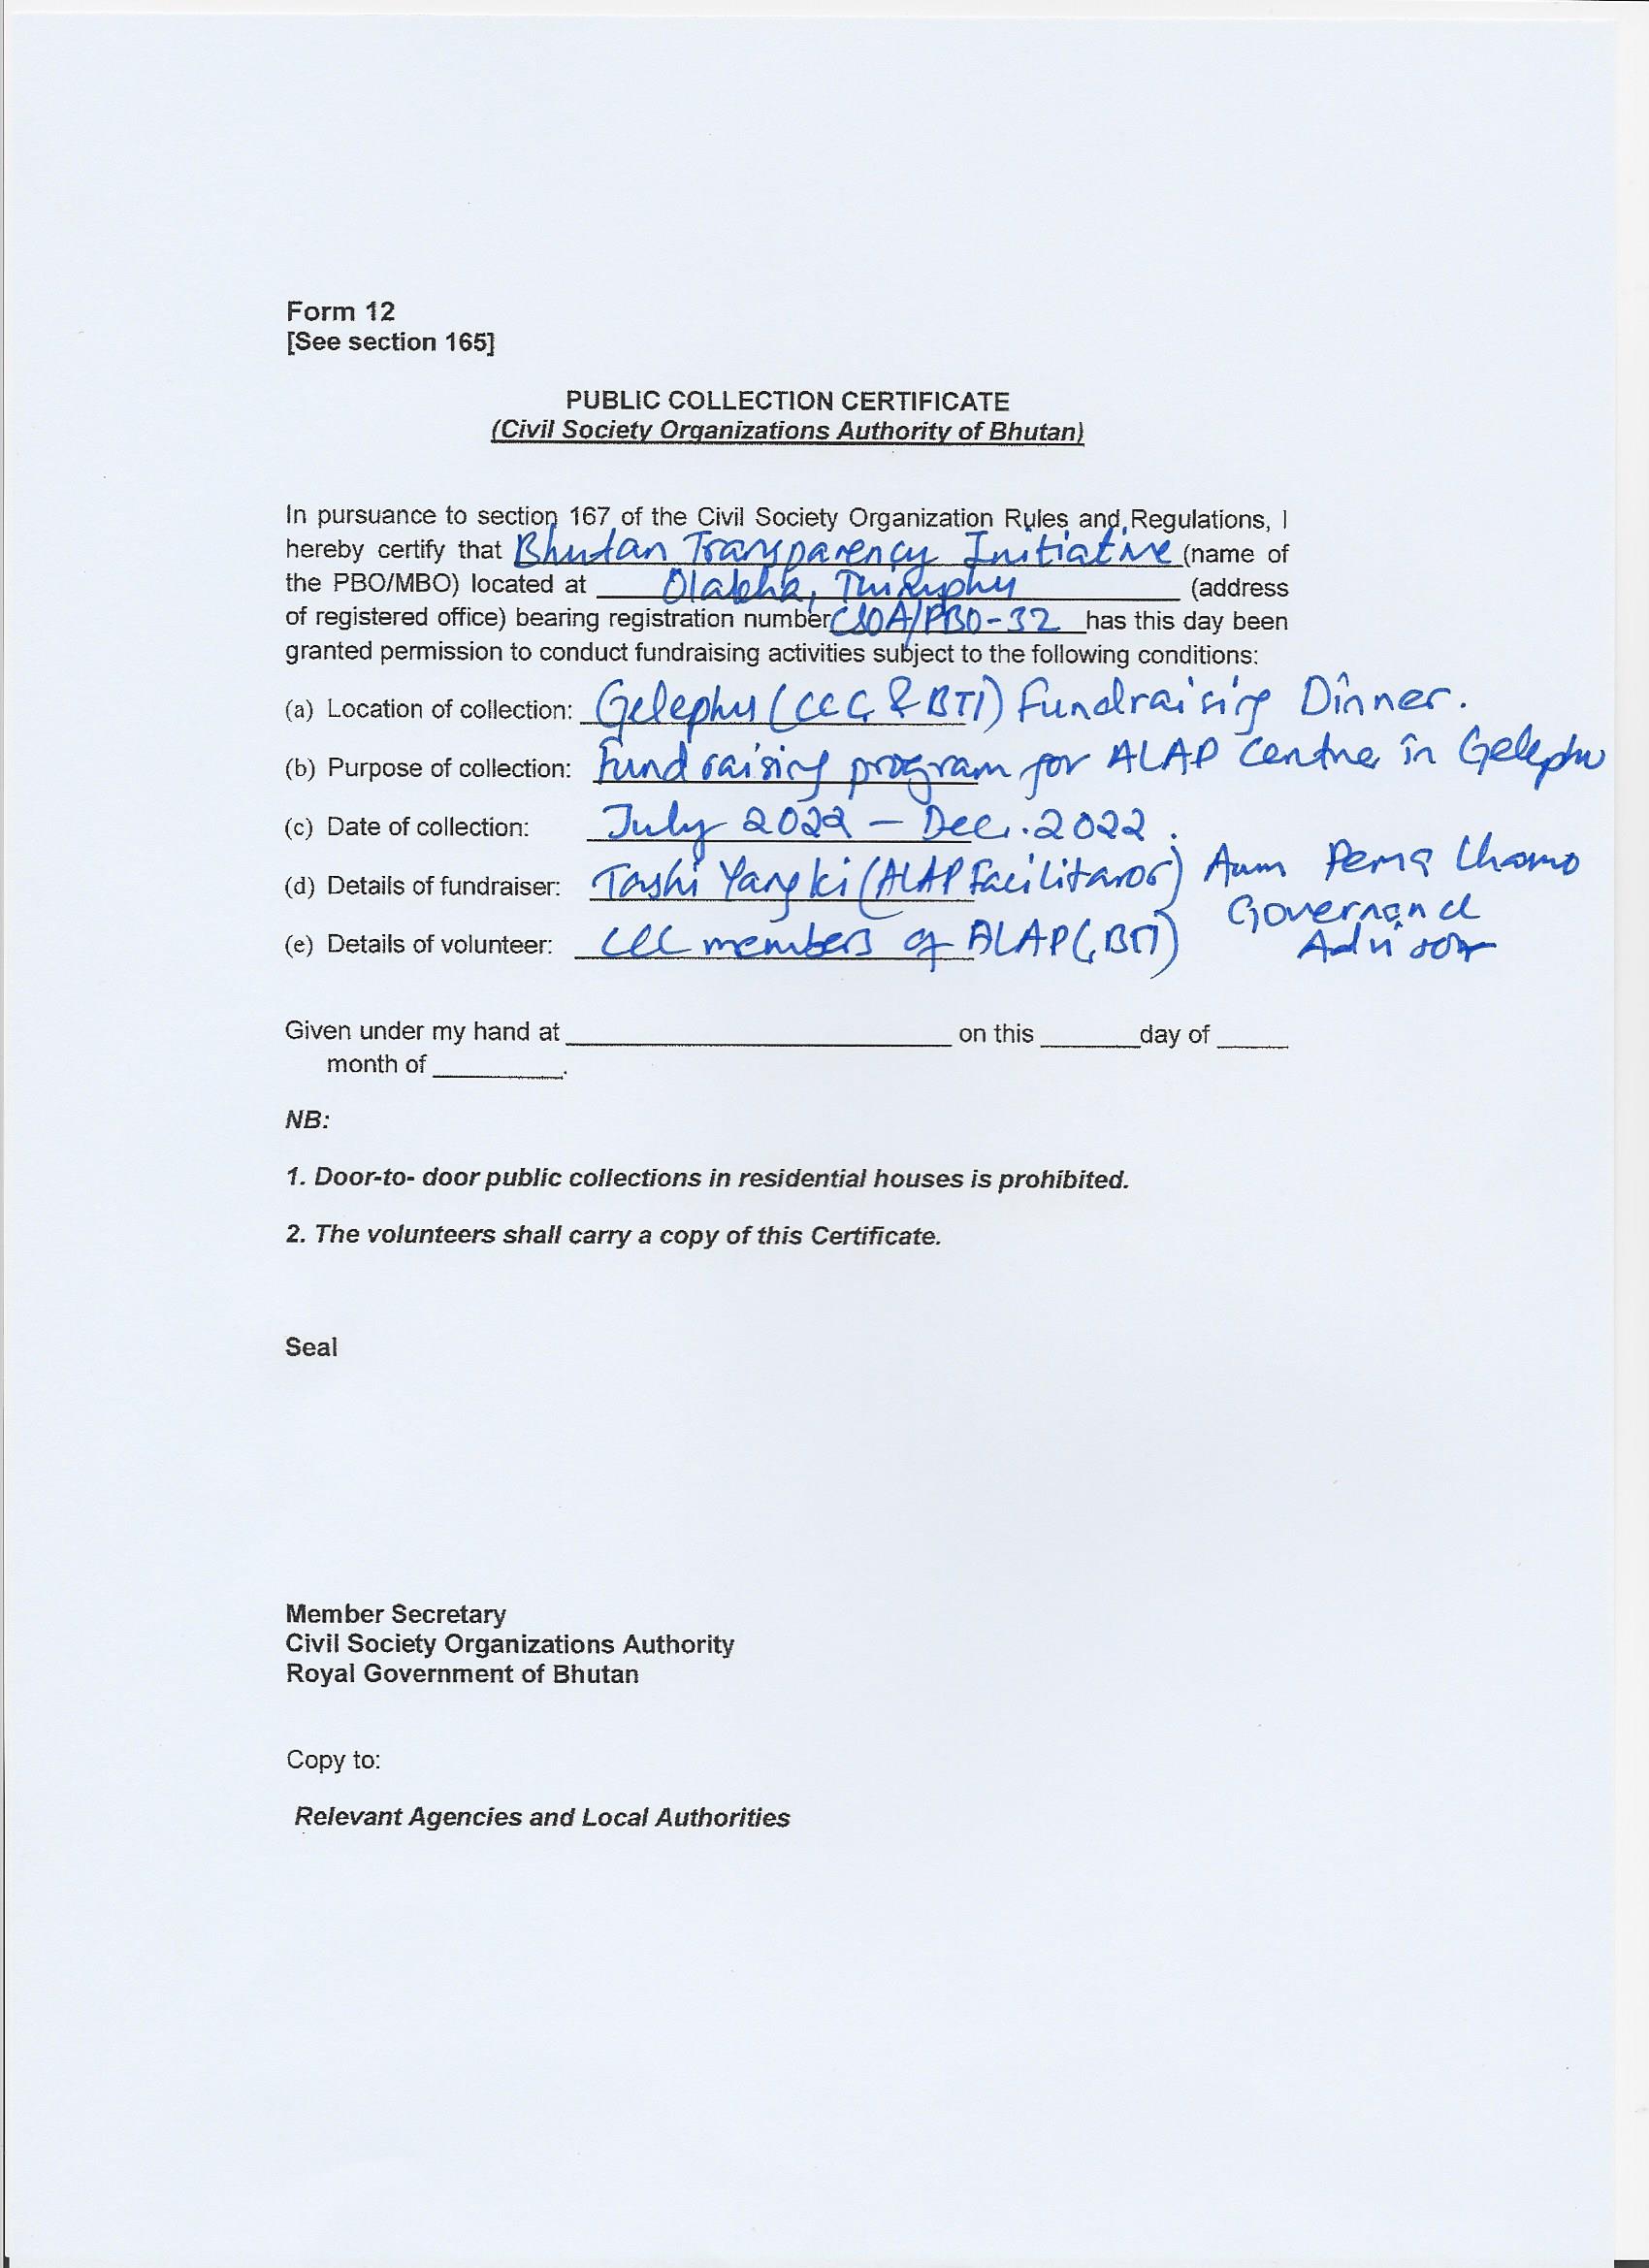 Form 12
[See section 165]
PUBLIC COLLECTION CERTIFICATE
(Civil Society Organizations Authority of Bhutan)
In pursuance to section 167 of the Civil Society Organization Rules and Regulations, I
hereby certify that Bhutan Transparency Initiative (name of
the PBO/MBO) located at Olakha, Thimphu (address
of registered office) bearing registration number CSOA/PBO-32 has this day been
granted permission to conduct fundraising activities subject to the following conditions:
(a) Location of collection: Gelephu ( & BTI) Fundraising Dinner.
(b) Purpose of collection: Fundraising program for ALAP Centre in Gelephu
(c) Date of collection: July 2022 – Dec. 2022.
(d) Details of fundraiser: Tashi Yangki (ALAP Facilitator) Aum Pema Lhamo
Governance
(e) Details of volunteer: members of ALAP (BTI) Advisor
Given under my hand at ____________ on this ______ day of _____
month of _________.
NB:
1. Door-to- door public collections in residential houses is prohibited.
2. The volunteers shall carry a copy of this Certificate.
Seal
Member Secretary
Civil Society Organizations Authority
Royal Government of Bhutan
Copy to:
Relevant Agencies and Local Authorities